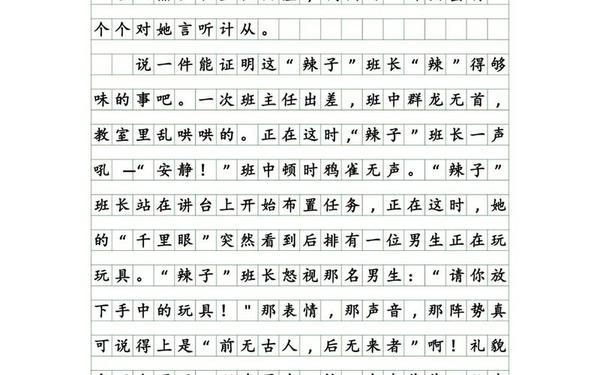 个个对她言听计从。
说一件能证明这“辣子”班长“辣”得够
味的事吧。一次班主任出差，班中群龙无首，
教室里乱哄哄的。正在这时，“辣子”班长一声
吼—“安静！”班中顿时鸦雀无声。“辣子”
班长站在讲台上开始布置任务，正在这时，她
的“千里眼”突然看到后排有一位男生正在玩
玩具。“辣子”班长怒视那名男生：“请你放
下手中的玩具！"那表情，那声音，那阵势真
可说得上是“前无古人，后无来者”啊！礼貌